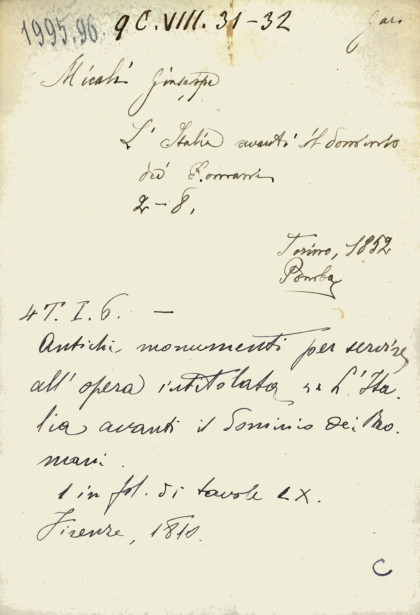 1995.96. 9 C. VIII. 31-32
Micali Giuseppe
L' Italia avanti il dominio
dei Romani
2-8,
Torino, 1852
Pomba
4 T. I. 6. —
Antichi monumenti per servire
all' opera intitolata L' Ita-
lia avanti il dominio dei Ro-
mani.
1 in fol. di tavole LX.
Firenze, 1810.
C